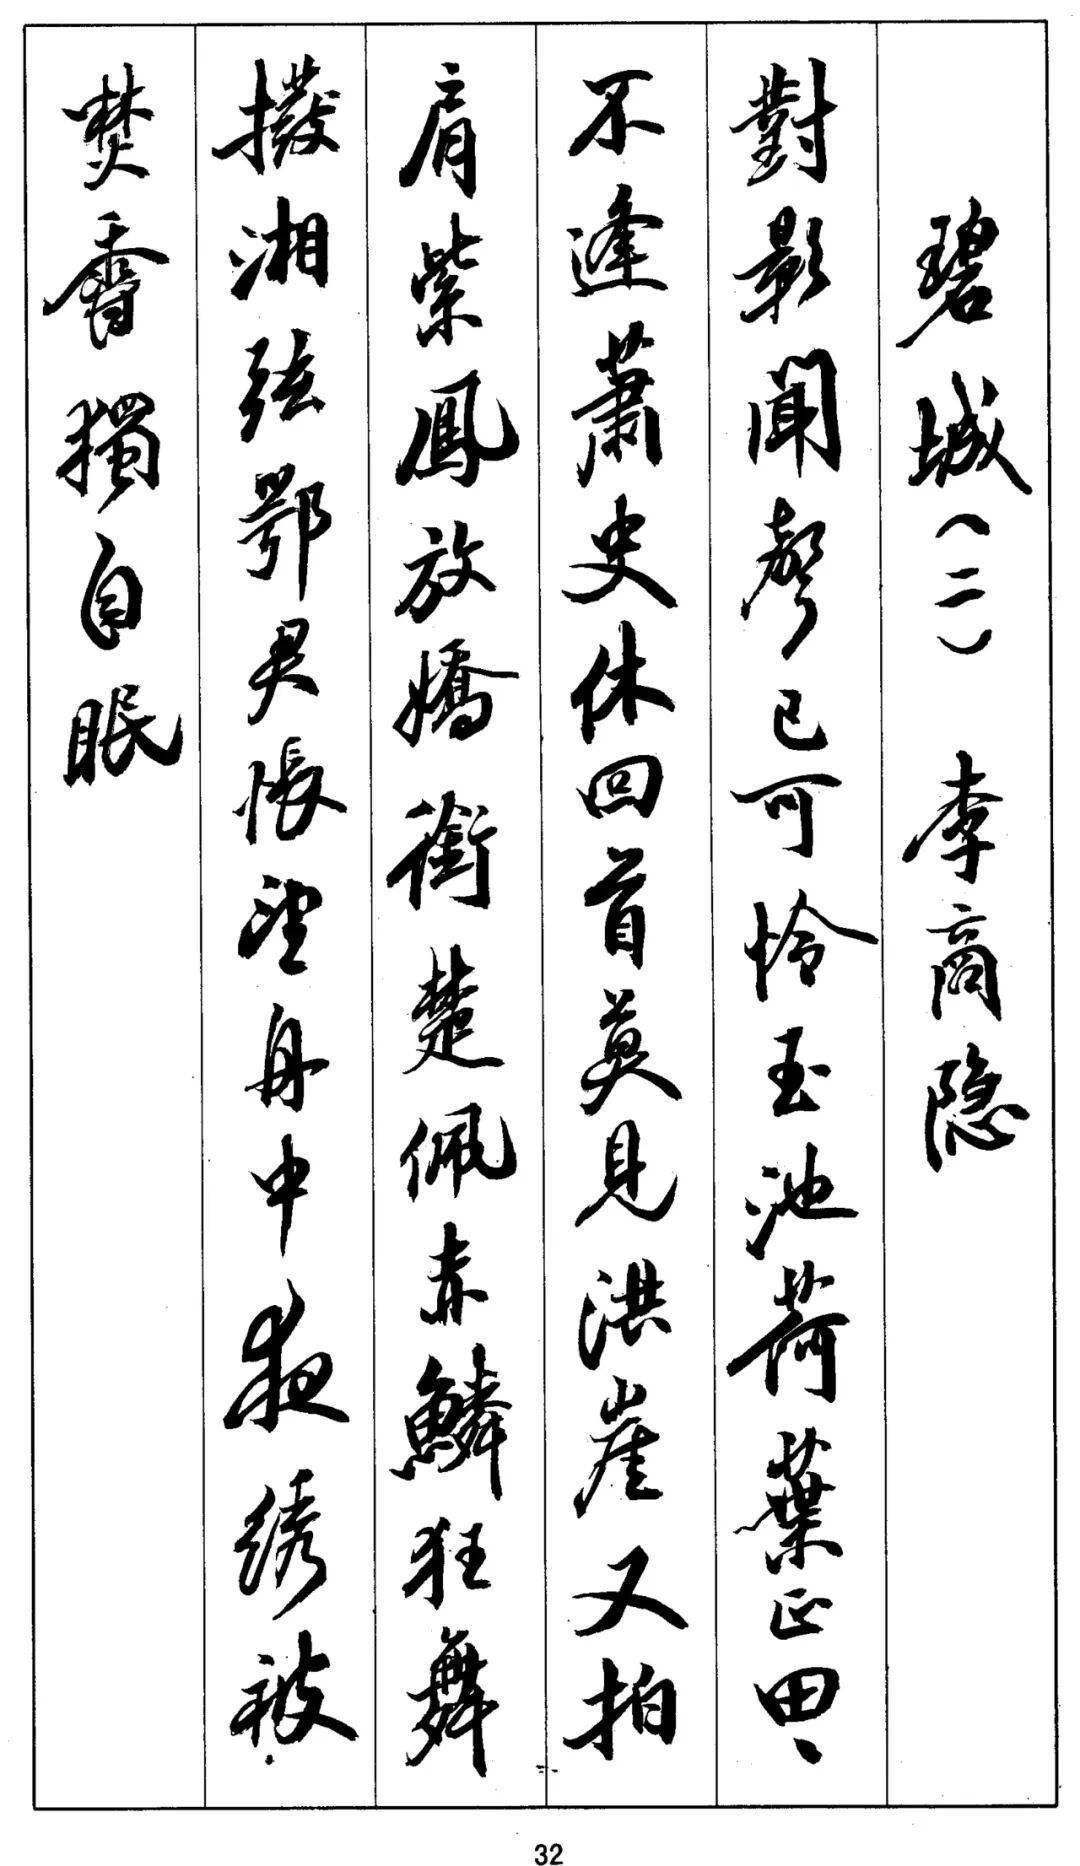 碧城（二） 李商隐
對影聞聲已可怜玉池荷葉正田々
不逢蕭史休回首莫見洪崖又拍
肩紫鳳放嬌銜楚佩赤鱗狂舞
撥湘弦鄂君悵望舟中夜绣被
焚香獨自眠
32